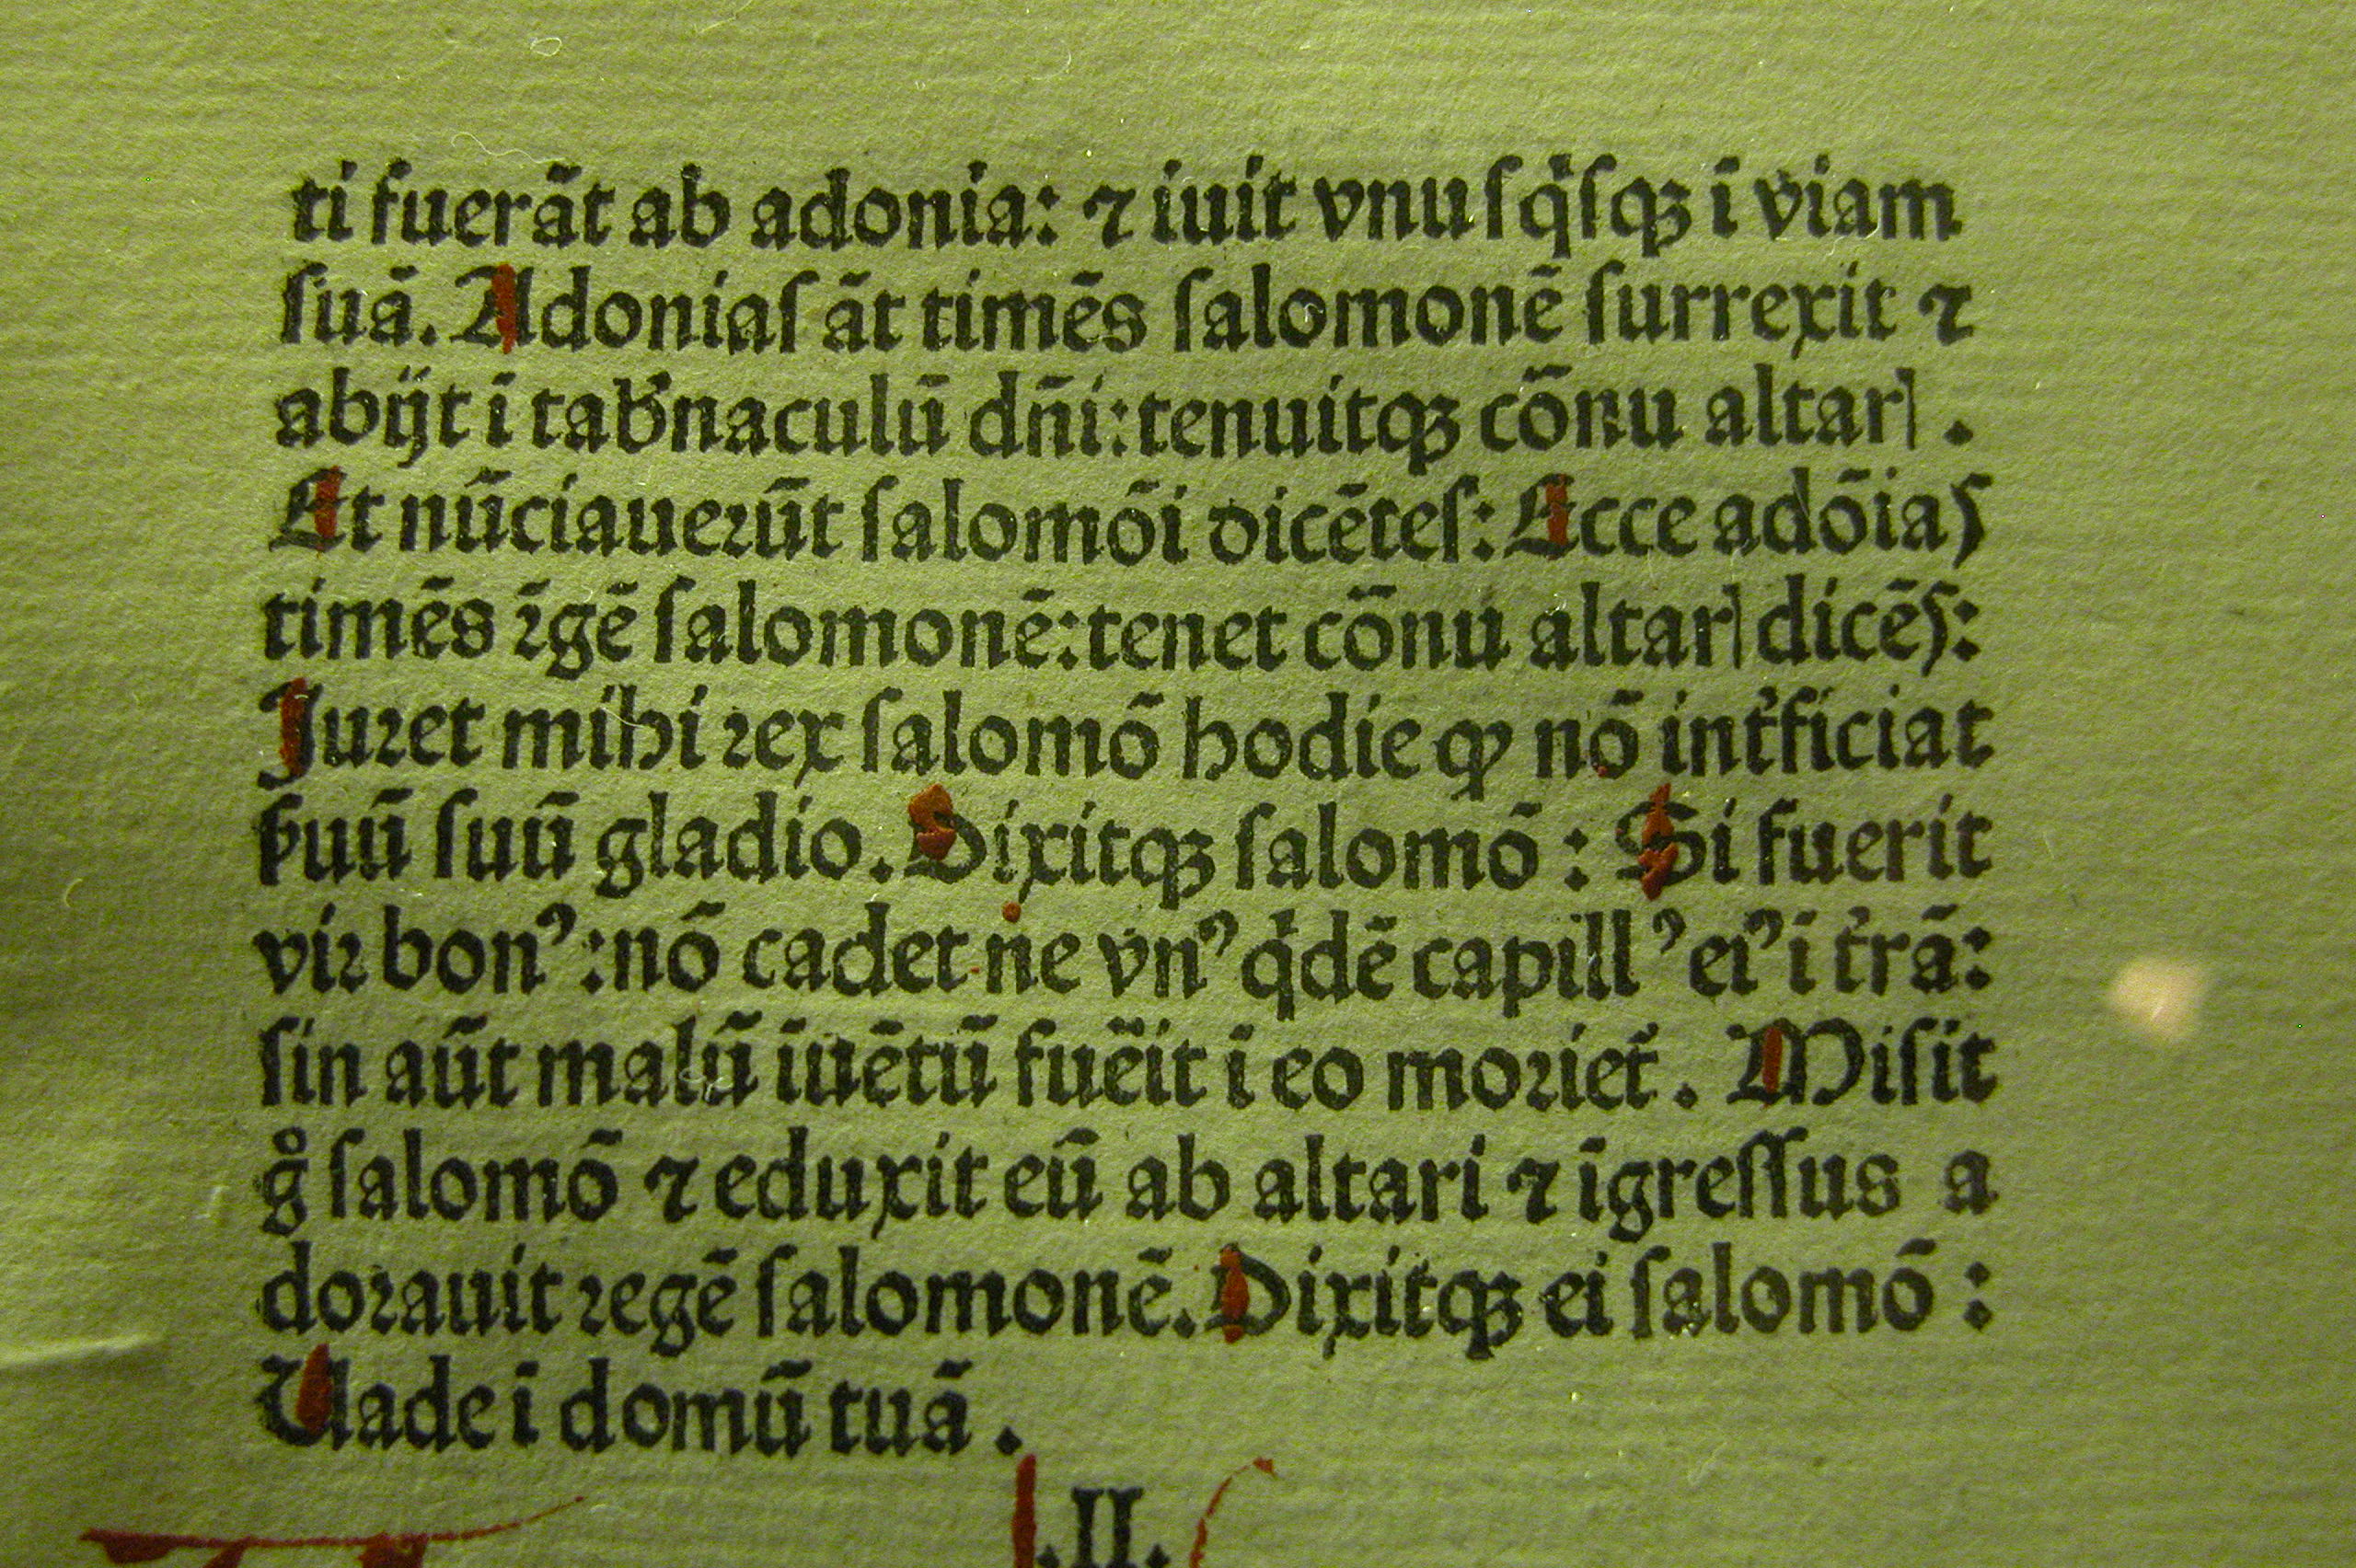 ti fuerãt ab adonia: ⁊ iuit vnuſq̇ſqꝫ ĩ viam
ſuã. Adoniaſ ãt timẽs ſalomonẽ ſurrexit ⁊
abijt ĩ tab̾naculũ dñi: tenuitqꝫ cõnu altarꝭ .
Et nũciauerũt ſalomõi dicẽteſ: Ecce adõias
timẽs r̃gẽ ſalomonẽ: tenet cõnu altarꝭ dicẽs:
Juret mihi rex ſalomõ hodie ꝙ nõ int̾ficiat
ẜuũ ſuũ gladio. Dixitqꝫ ſalomõ : Si fuerit
vir bonꝰ: nõ cadet ne vnꝰ q̇dẽ capillꝰ eiꝰ ĩ t̾rã:
ſin aũt malũ ĩuẽtũ fuẽit ĩ eo moriet̾ . Miſit
gͦ ſalomõ ⁊ eduxit eũ ab altari ⁊ ĩgreſſus a
dorauit regẽ ſalomonẽ. Dixitqꝫ ei ſalomõ :
Uade ĩ domũ tuã .
.II.